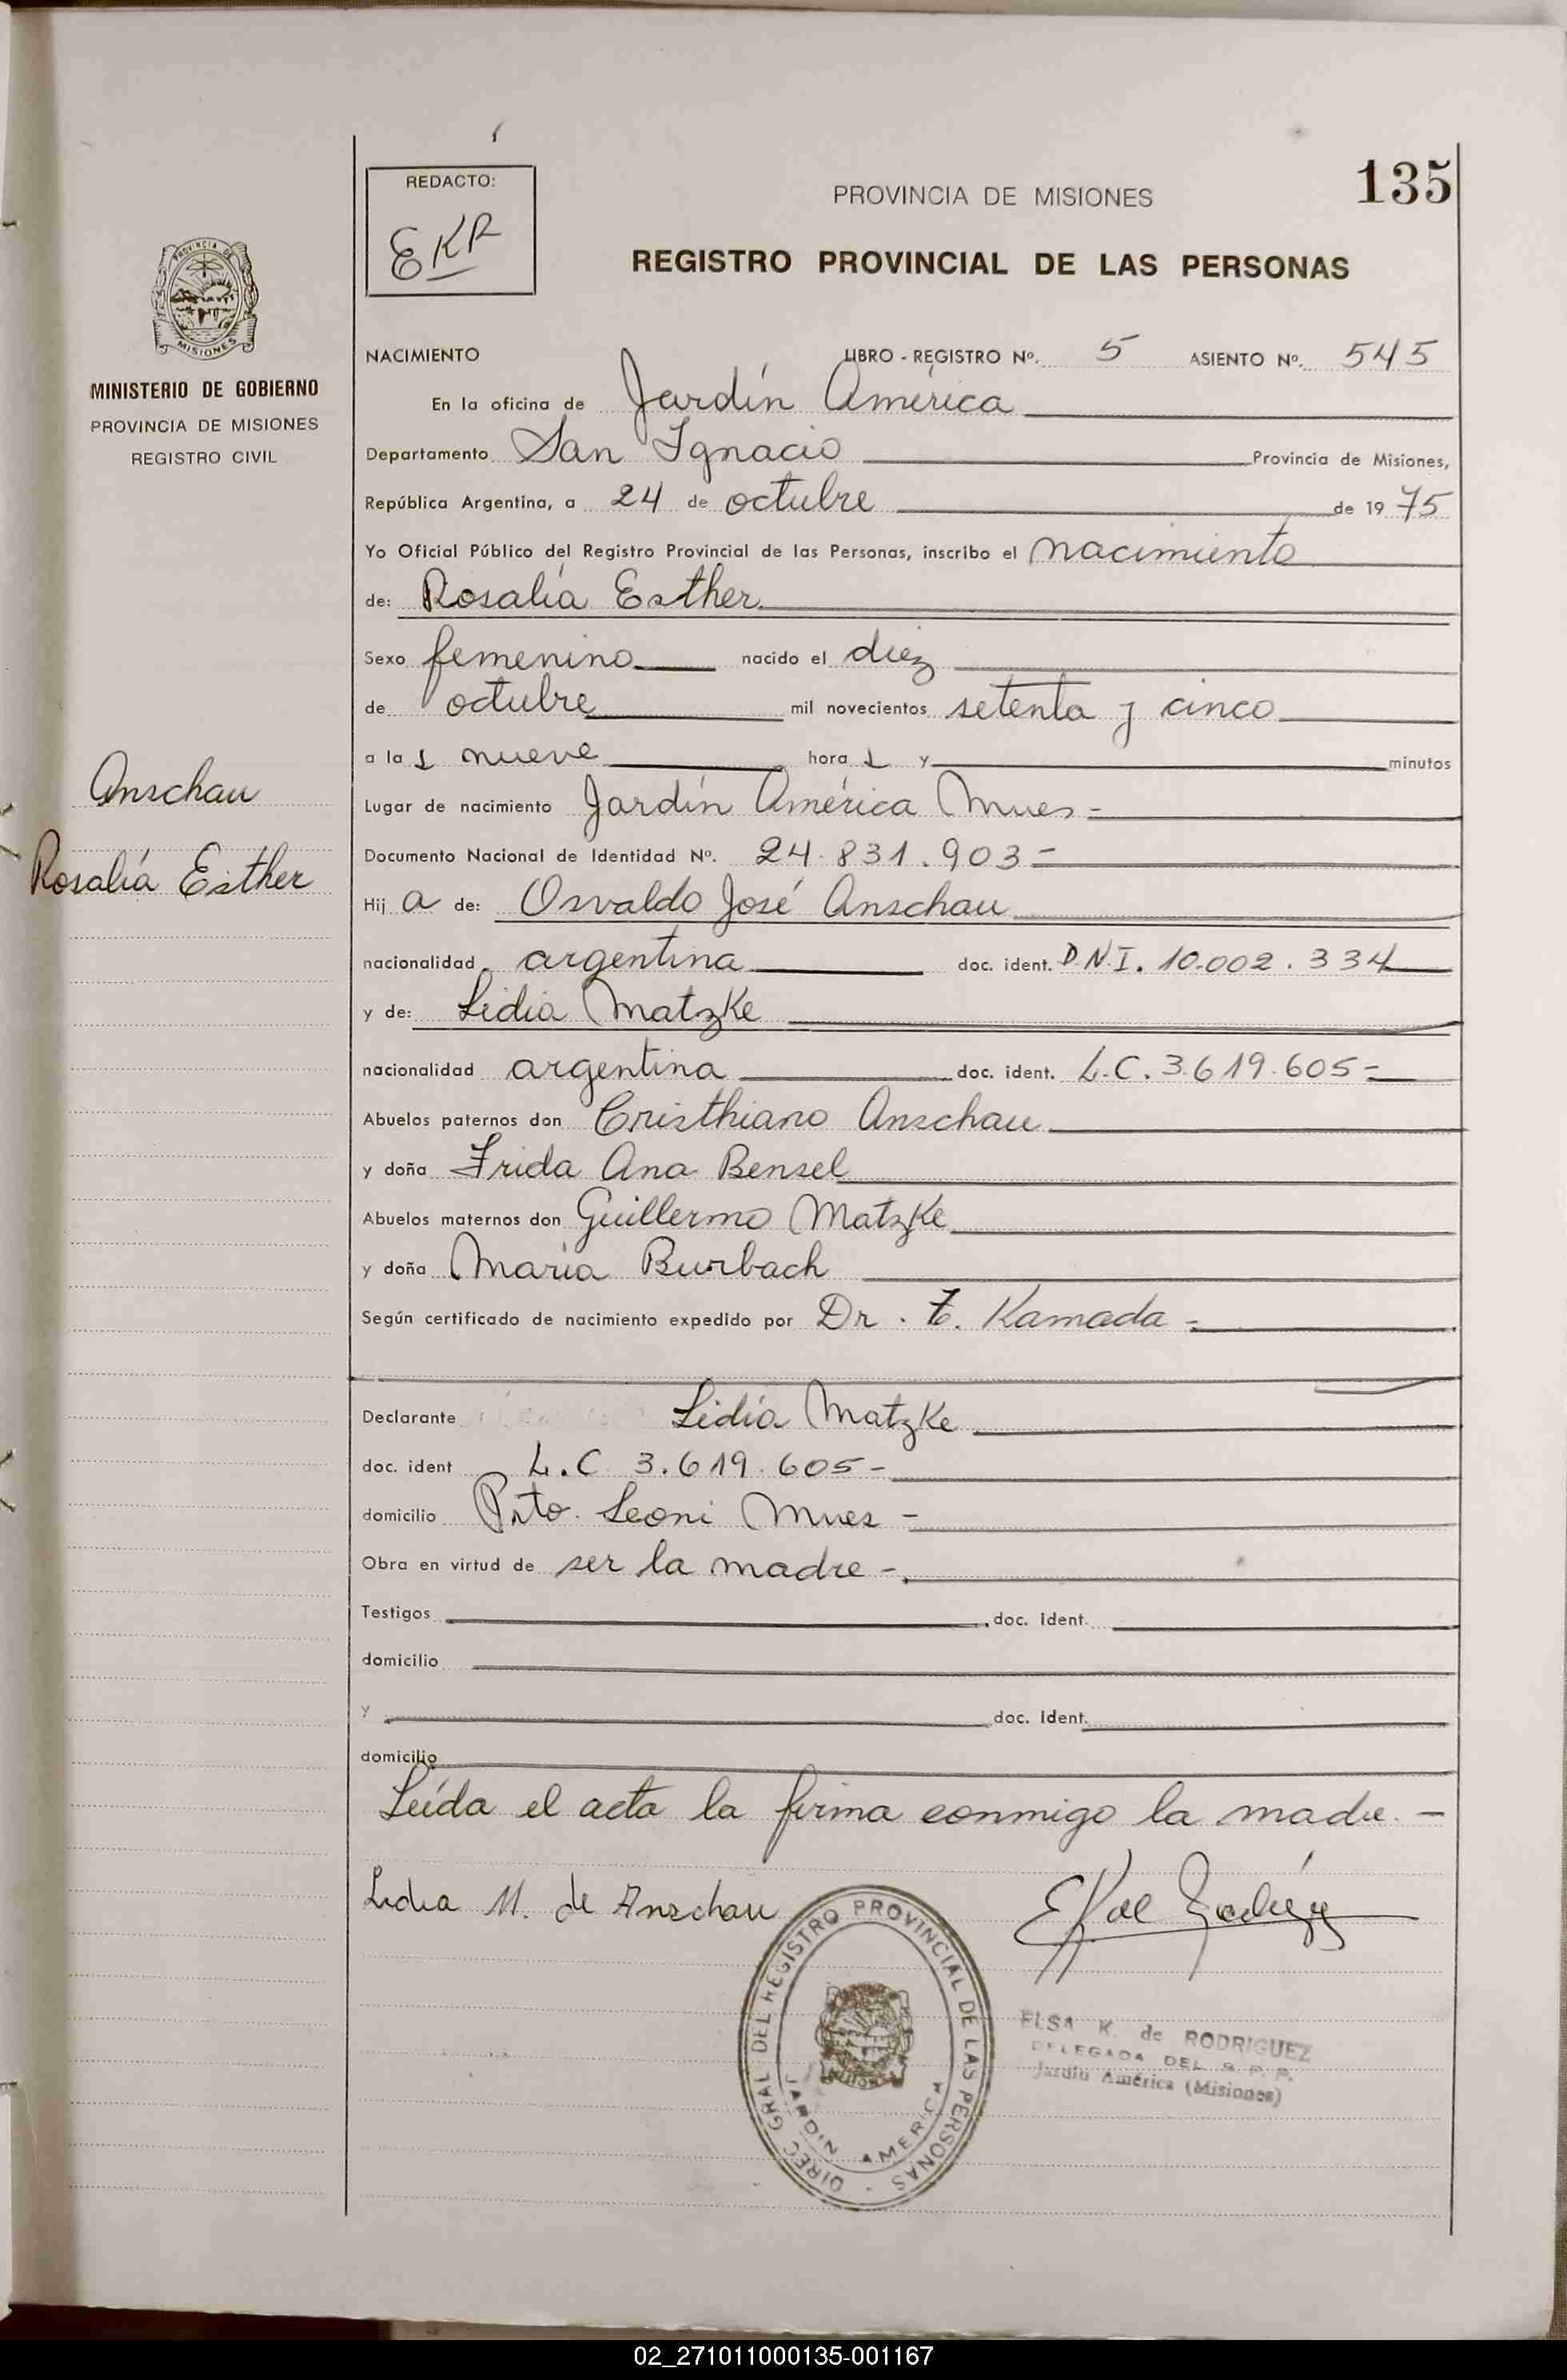 135
REDACTO:
EKR
PROVINCIA DE MISIONES
REGISTRO PROVINCIAL DE LAS PERSONAS
PROVINCIA DE
MISIONES
MINISTERIO DE GOBIERNO
PROVINCIA DE MISIONES
REGISTRO CIVIL
Anschau
Rosalía Esther
NACIMIENTO LIBRO - REGISTRO Nº. 5 ASIENTO Nº. 545
En la oficina de Jardín América
Departamento San Ignacio Provincia de Misiones,
República Argentina, a 24 de octubre de 19 75
Yo Oficial Público del Registro Provincial de las Personas, inscribo el nacimiento
de: Rosalía Esther
Sexo femenino nacido el diez
de octubre mil novecientos setenta y cinco
a la s nueve hora s y minutos
Lugar de nacimiento Jardín América Mnes -
Documento Nacional de Identidad Nº. 24.831.903 -
Hij a de: Osvaldo José Anschau
nacionalidad argentina doc. ident. D.N.I. 10.002.334
y de: Lidia Matzke
nacionalidad argentina doc. ident. L.C. 3.619.605 -
Abuelos paternos don Cristhiano Anschau
y doña Frida Ana Bensel
Abuelos maternos don Guillermo Matzke
y doña María Burbach
Según certificado de nacimiento expedido por Dr. Kamada -
Declarante Lidia Matzke
doc. ident L.C 3.619.605 -
domicilio Pnto. Leoni Mnes -
Obra en virtud de ser la madre -.
Testigos doc. ident.
domicilio
y doc. ident.
domicilio
Leída el acta la firma conmigo la madre. -
Lidia M. de Anschau
DIREC GRAL DEL REGISTRO PROVINCIAL DE LAS PERSONAS -
JARDIN AMERICA
ELSA K. de RODRIGUEZ
DELEGADA DEL R. P. P.
Jardín América (Misiones)
02_271011000135-001167